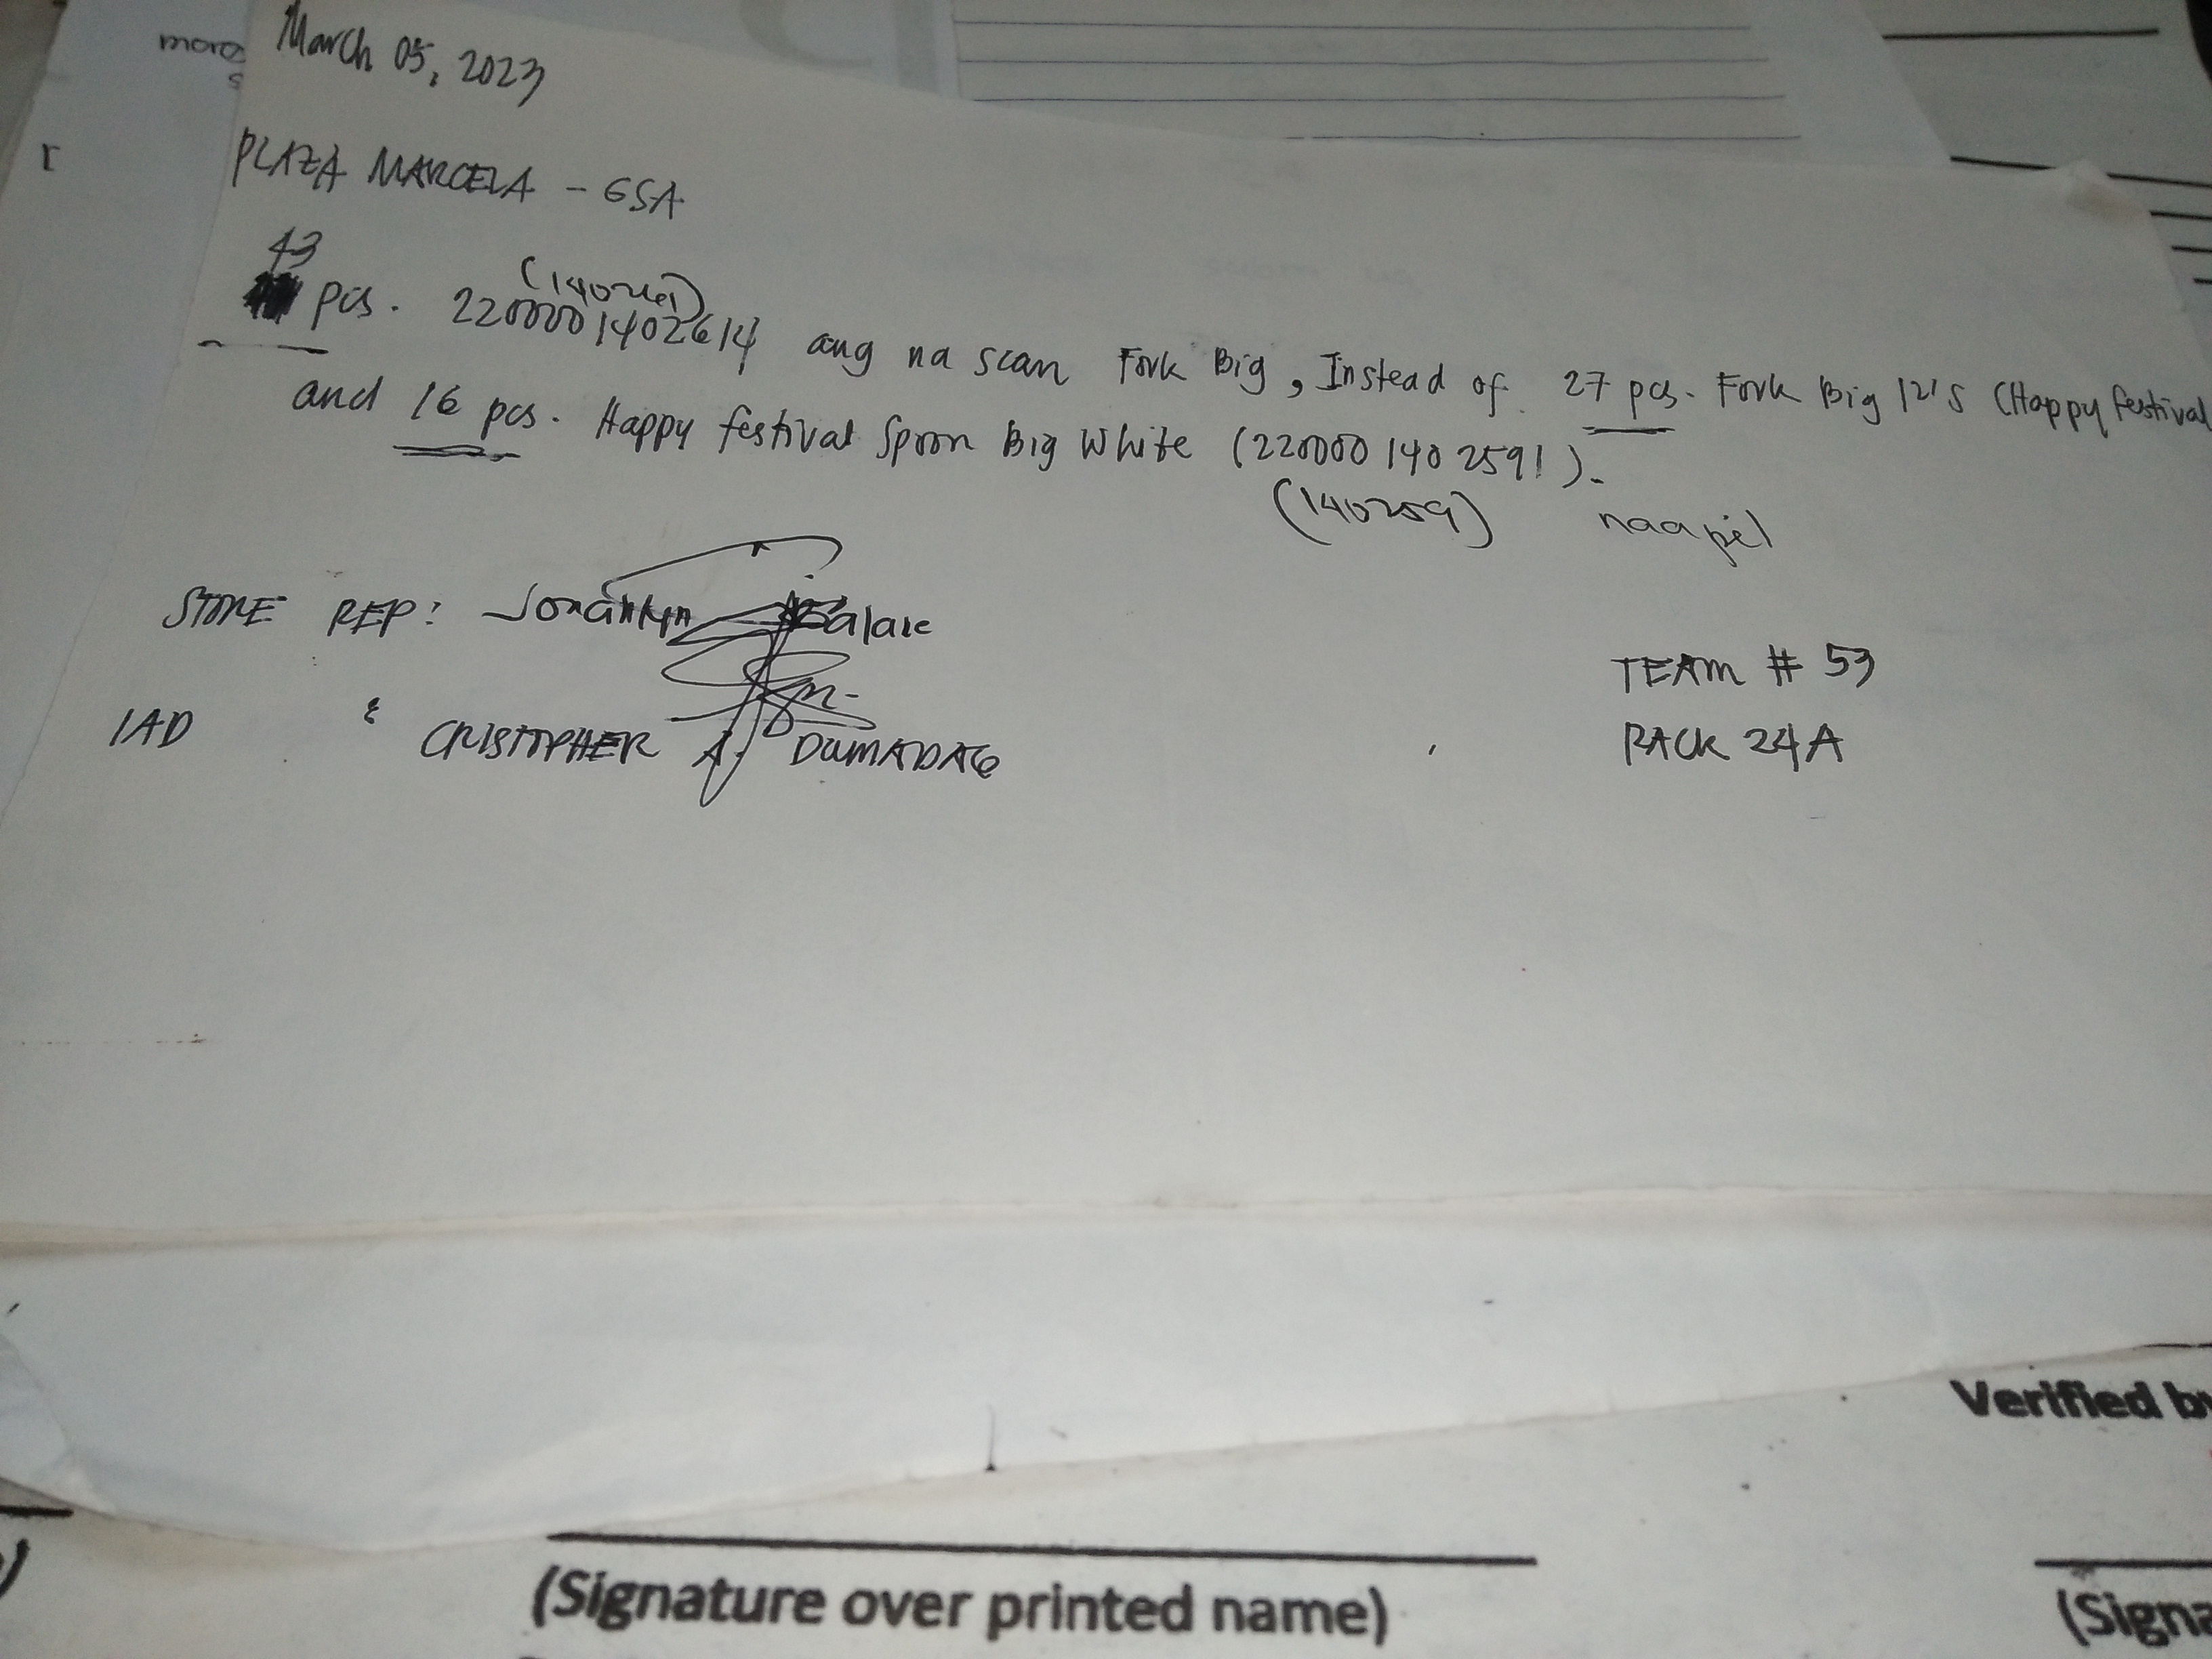 March 05, 2023
PLAZA MARCELA - GSA
43
(140261)
pcs. 2200001402614 ang na scan Fork Big, Instead of 27 pcs. Fork Big 12's (Happy festival
and 16 pcs. Happy festival Spoon Big White (2200001402591).
(140259) naapil
STORE REP:
IAD : CRISTOPHER A. DUMADAG
TEAM # 53
RACK 24A
Verified by
(Signature over printed name)
(Signa